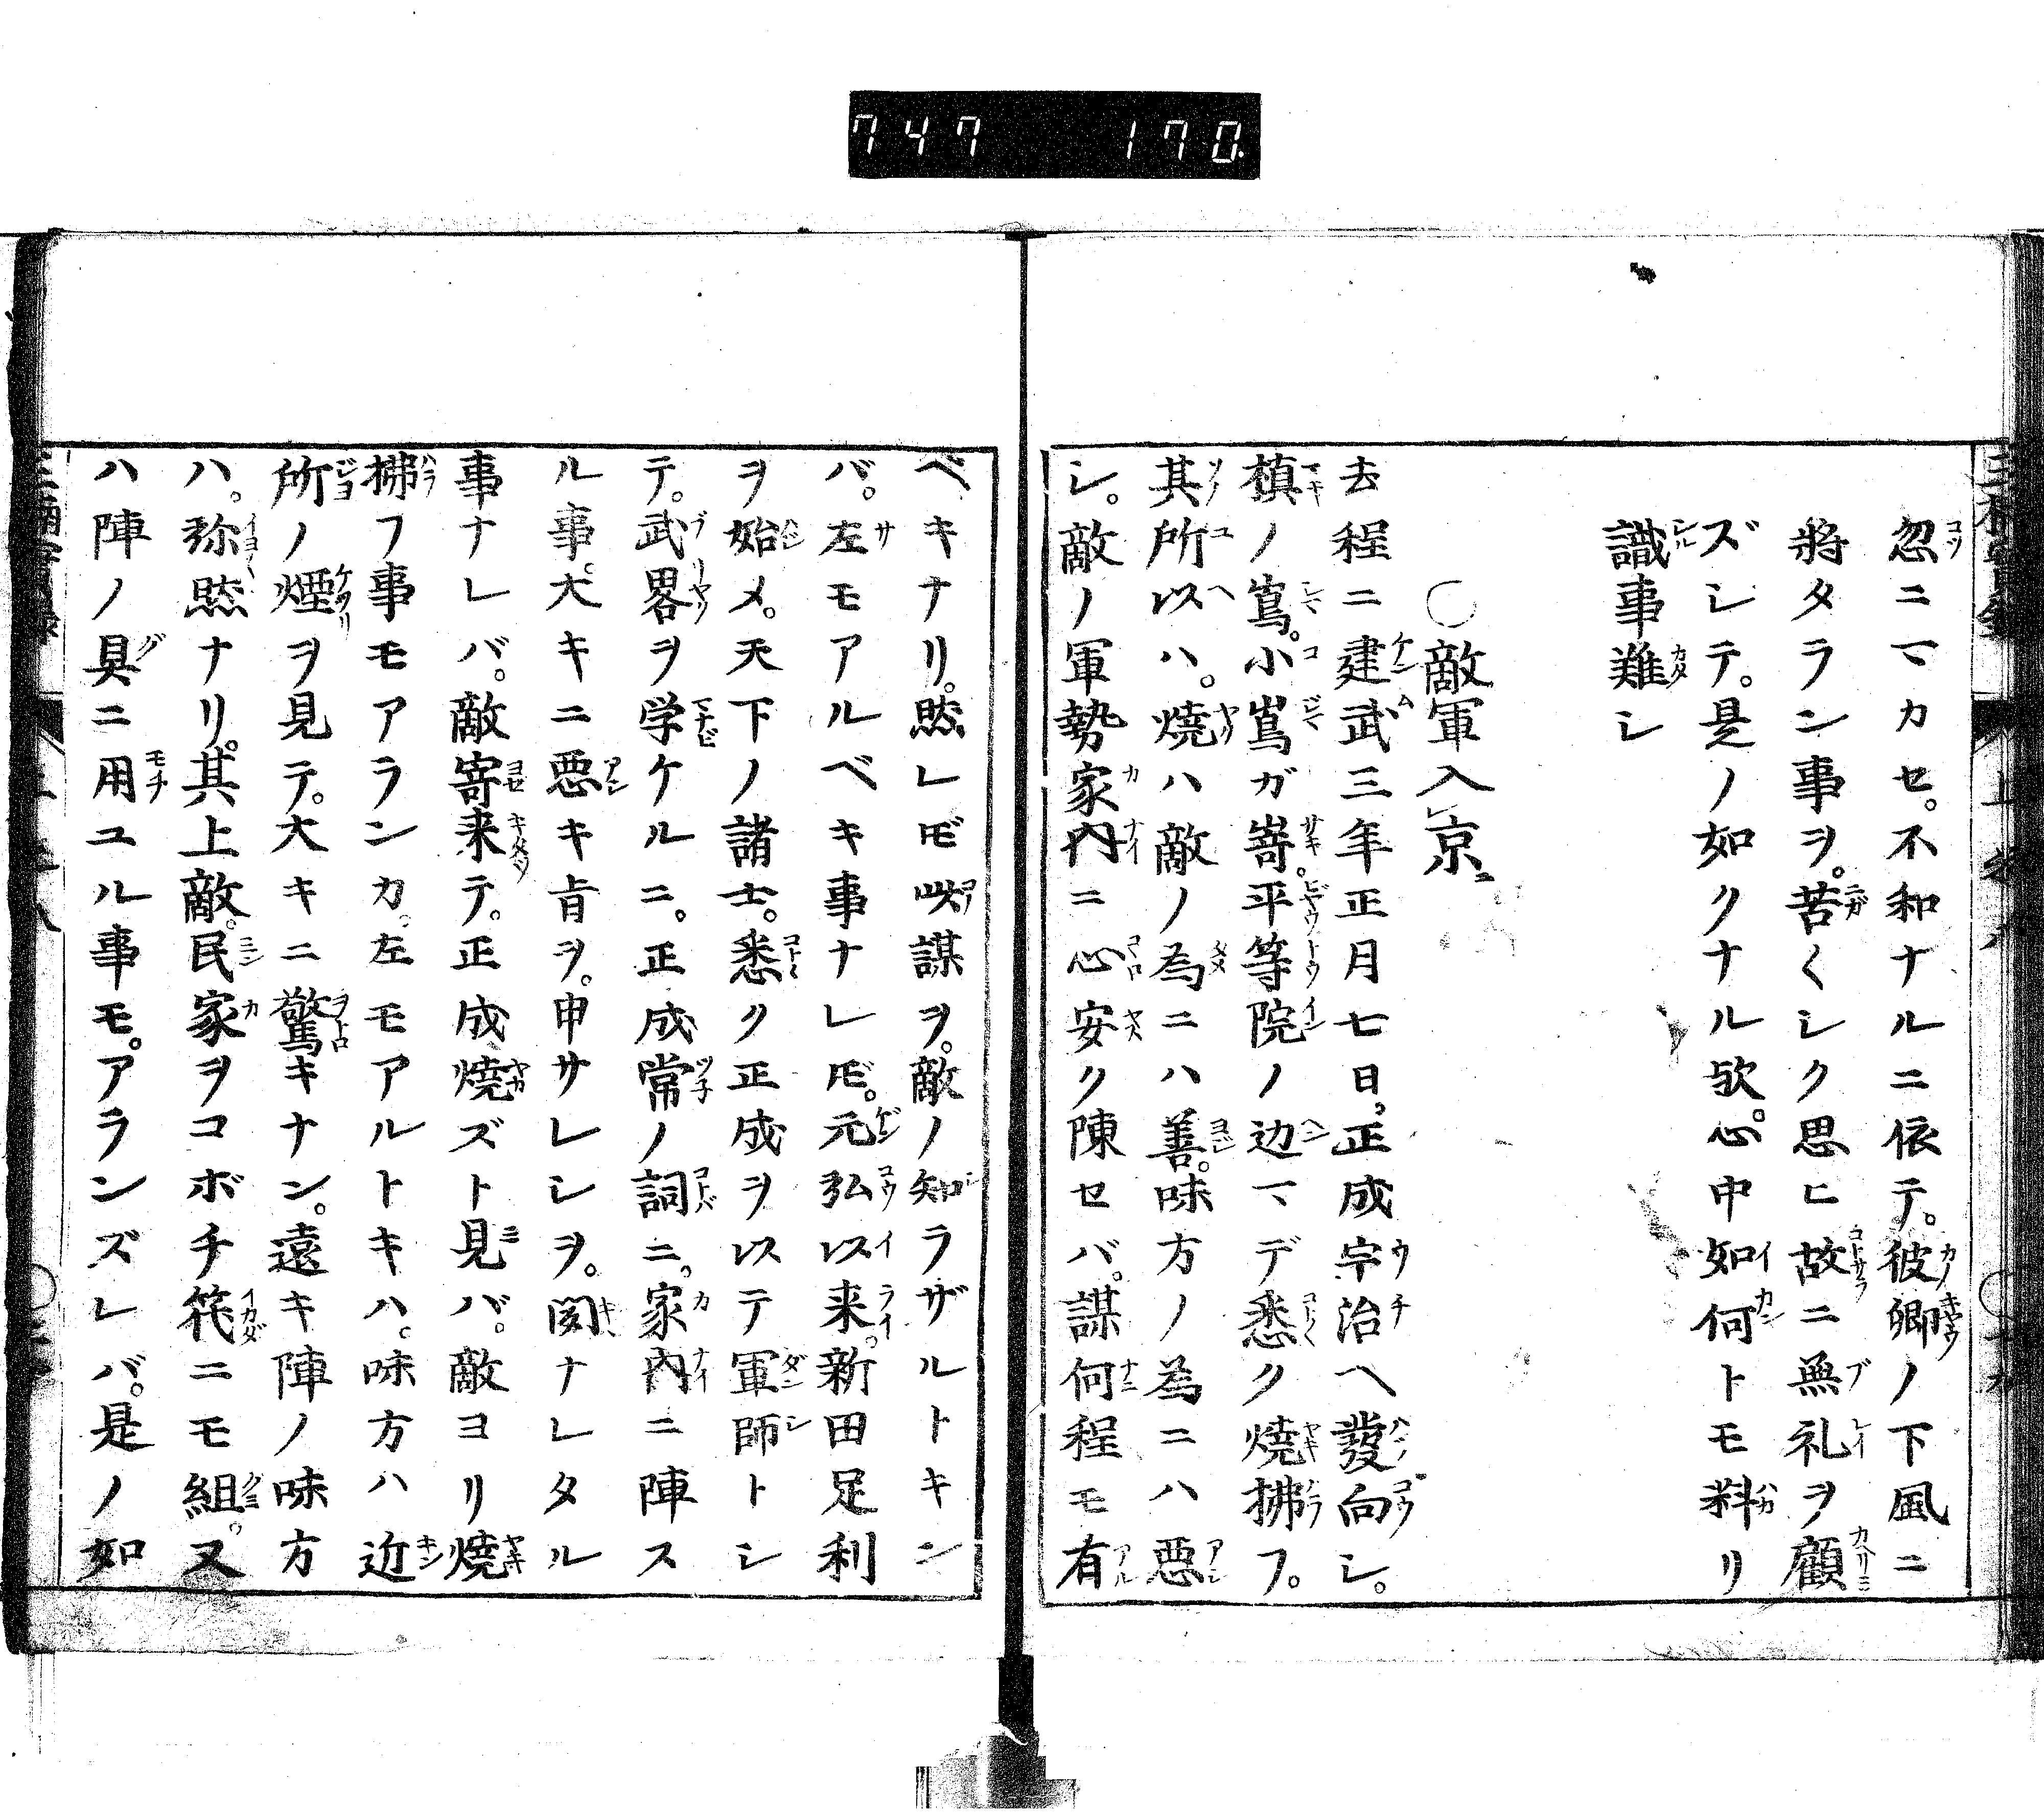 747 170
忽ニマカセ。不和ナルニ依テ。彼卿ノ下風ニ
將タラン事ヲ。苦〱シク思ヒ故ニ無礼ヲ顧
ズシテ。是ノ如クナル歟。心中如何トモ料リ
識事難シ
○敵軍入京ニ
去程ニ建武三年正月七日、正成宇治ヘ發向シ。
槙ノ嶌。小嶌ガ嵜。平等院ノ辺マデ悉ク燒拂フ。
其所以ハ。燒ハ敵ノ為ニハ善。味方ノ為ニハ悪
シ。敵ノ軍勢家内ニ心安ク陳セバ。謀何程モ有
ベキナリ。然レ𪜈此謀ヲ。敵ノ知ラザルトキン
バ。左モアルベキ事ナレ𪜈。元弘以来。新田足利
ヲ始メ。天下ノ諸士。悉ク正成ヲ以テ軍師トシ
テ。武畧ヲ学ケルニ。正成常ノ詞ニ。家内ニ陣ス
ル事。大キニ悪キ旨ヲ。申サレシヲ。聞ナレタル
事ナレバ。敵寄来テ。正成燒ズト見バ。敵ヨリ燒
拂フ事モアランカ。左モアルトキハ。味方ハ近
所ノ煙ヲ見テ。大キニ驚キナン。遠キ陣ノ味方
ハ。弥然ナリ。其上敵。民家ヲコボチ筏ニモ組。又
ハ陣ノ具ニ用ユル事モ。アランズレバ。是ノ如